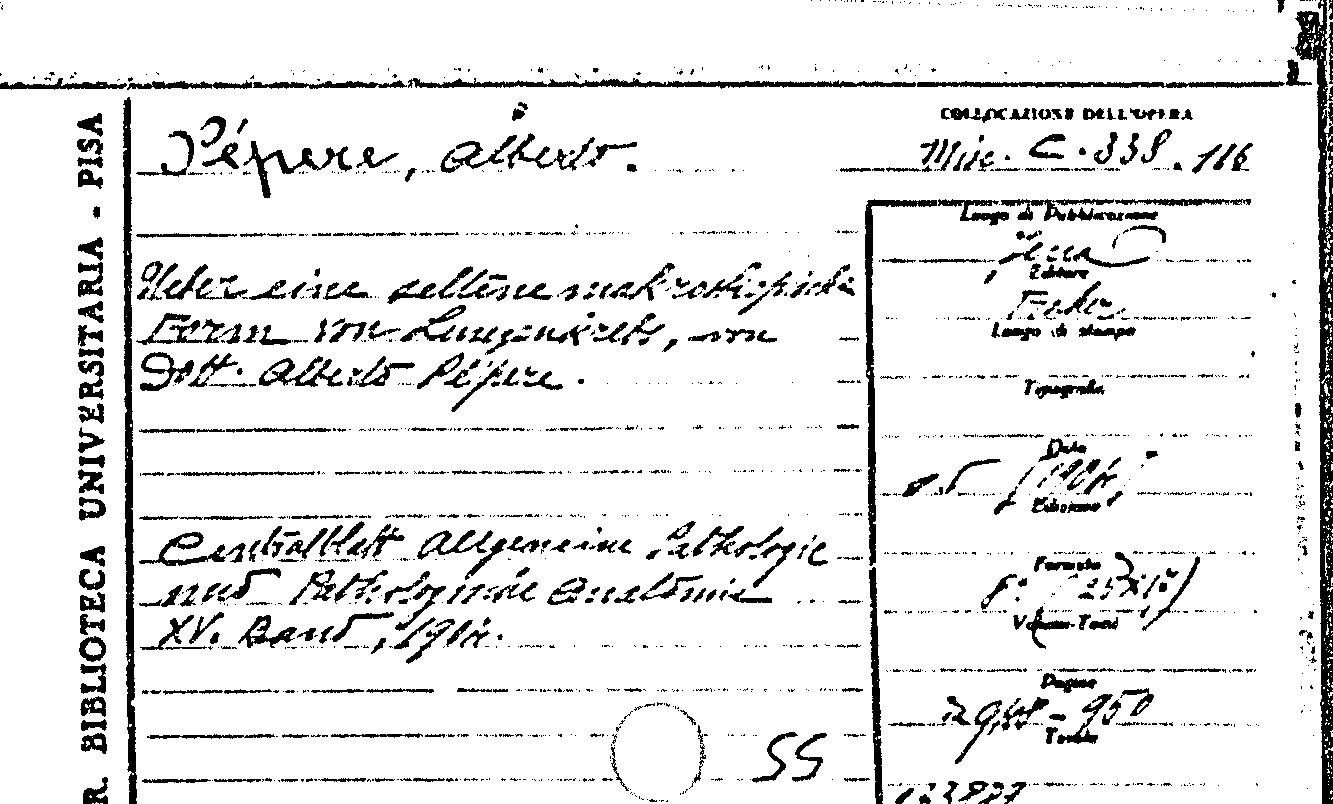 R. BIBLIOTECA UNIVERSITARIA - PISA
Pépere, Alberto.
COLLOCAZIONE DELL'OPERA
Misc. C. 338. 116
Ueber eine seltene makroskopische
Form von Lungenkrebs, von
Dott. Alberto Pépere.
Centralblatt Allgemeine Pathologie
und Pathologische Anatomie
XV. Band, 1904.
SS
Luogo di Pubblicazione
Jena
Editore
Fischer
Luogo di stampa
Tipografia
Data
[1904]
Edizione
Formato
8°
Volumi-Tomi
Pagine
948 - 950
Tavole